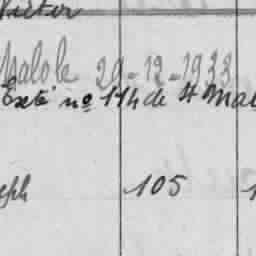 Victor
Malo le 29-12-1933
Exété nº 114 de St Mal
eph 105